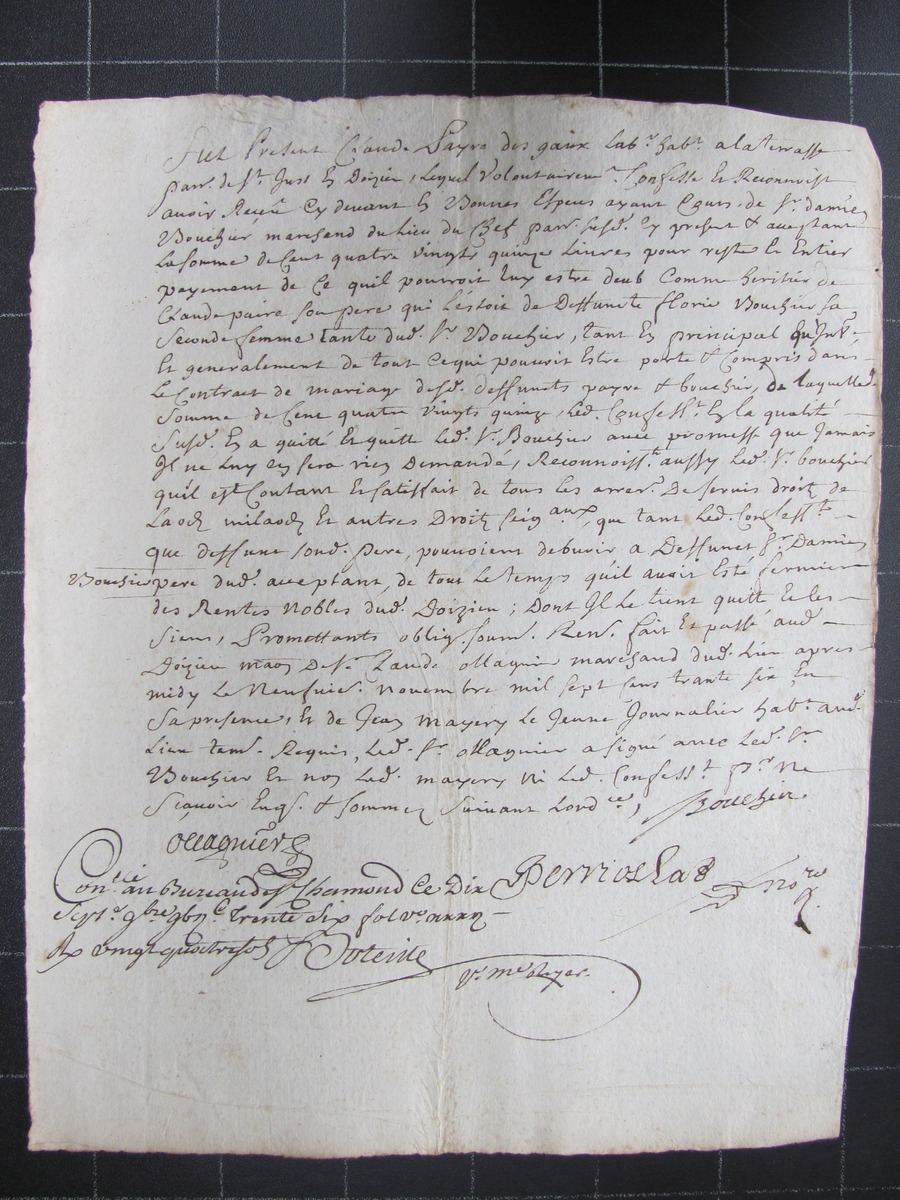 Fut Present Claude Payre des gaux Lab.r hab.t a la terrasse
parr. de S.t Just En Doizieu, Lequel Volontairem.t Confesse Et Reconnoist
avoir Reçeu Cy devant En Bonnes Especes ayant Cours de S.r damien
Bouchier marchand du lieu du Chef parr. susd. Cy present & acceptant
La somme de Cent quatre vingts quinze Livres pour reste le Entier
payement de Ce quil pouvroit luy estre deub Comme heritier de
Claude paire son pere qui L'estoit de Deffuncte florie Bouchier sa
Seconde femme tante dud. S.r Bouchier, tant En principal qu'Int.,
Et generalement de tout Cequi pouvoit Estre porté & Compris dans
Le Contract de mariage desd. deffunts payre & bouchier, de laquelle d.
Somme de Cent quatre vingts quinze Led. Confess.t En la qualité
Susd. En a quitté Et quitte Led. S.r Bouchier avec promesse que Jamais
Il ne Luy en sera rien Demandé, Reconnoiss.t aussy Led. S.r bouchier
quil est Contant Et satisfait de tous les arrer. De servis droitz de
Laods milaods Et autres Droitz seig.aux, que tant Led. Confess.t
que deffunt sond. pere, pouvoient debvoir a Deffunct S.r Damien
Bouchier pere dud. acceptant, de tout Le temps quil avoit Esté fermier
des Rentes Nobles dud. Doizieu; Dont Il Le tient quitte Et les
Siens, Promettants oblig. soum. Ren. fait Et passé aud.
Doizieu maon De S.r Claude Magnier marchand dud. Lieu apres
midy Le Neufvie. novembre mil sept cens trante six, En
Sa presence, Et de Jean mayery Le Jeune Journalier hab.t aud.
Lieu tem. Requis, Led. S.r Magnier a signé avec Led. S.r
Bouchier Et non Led. mayery Ni Led. Confess.t p.r Ne
Sçavoir Enq. & sommez suivant Lord.ce, Bouchier
Magnier
Con.lé au Bureau de S.t Chamond Ce Dix
Sept.e 9bre Trente six fol v.o
Rx vingt quatre sols